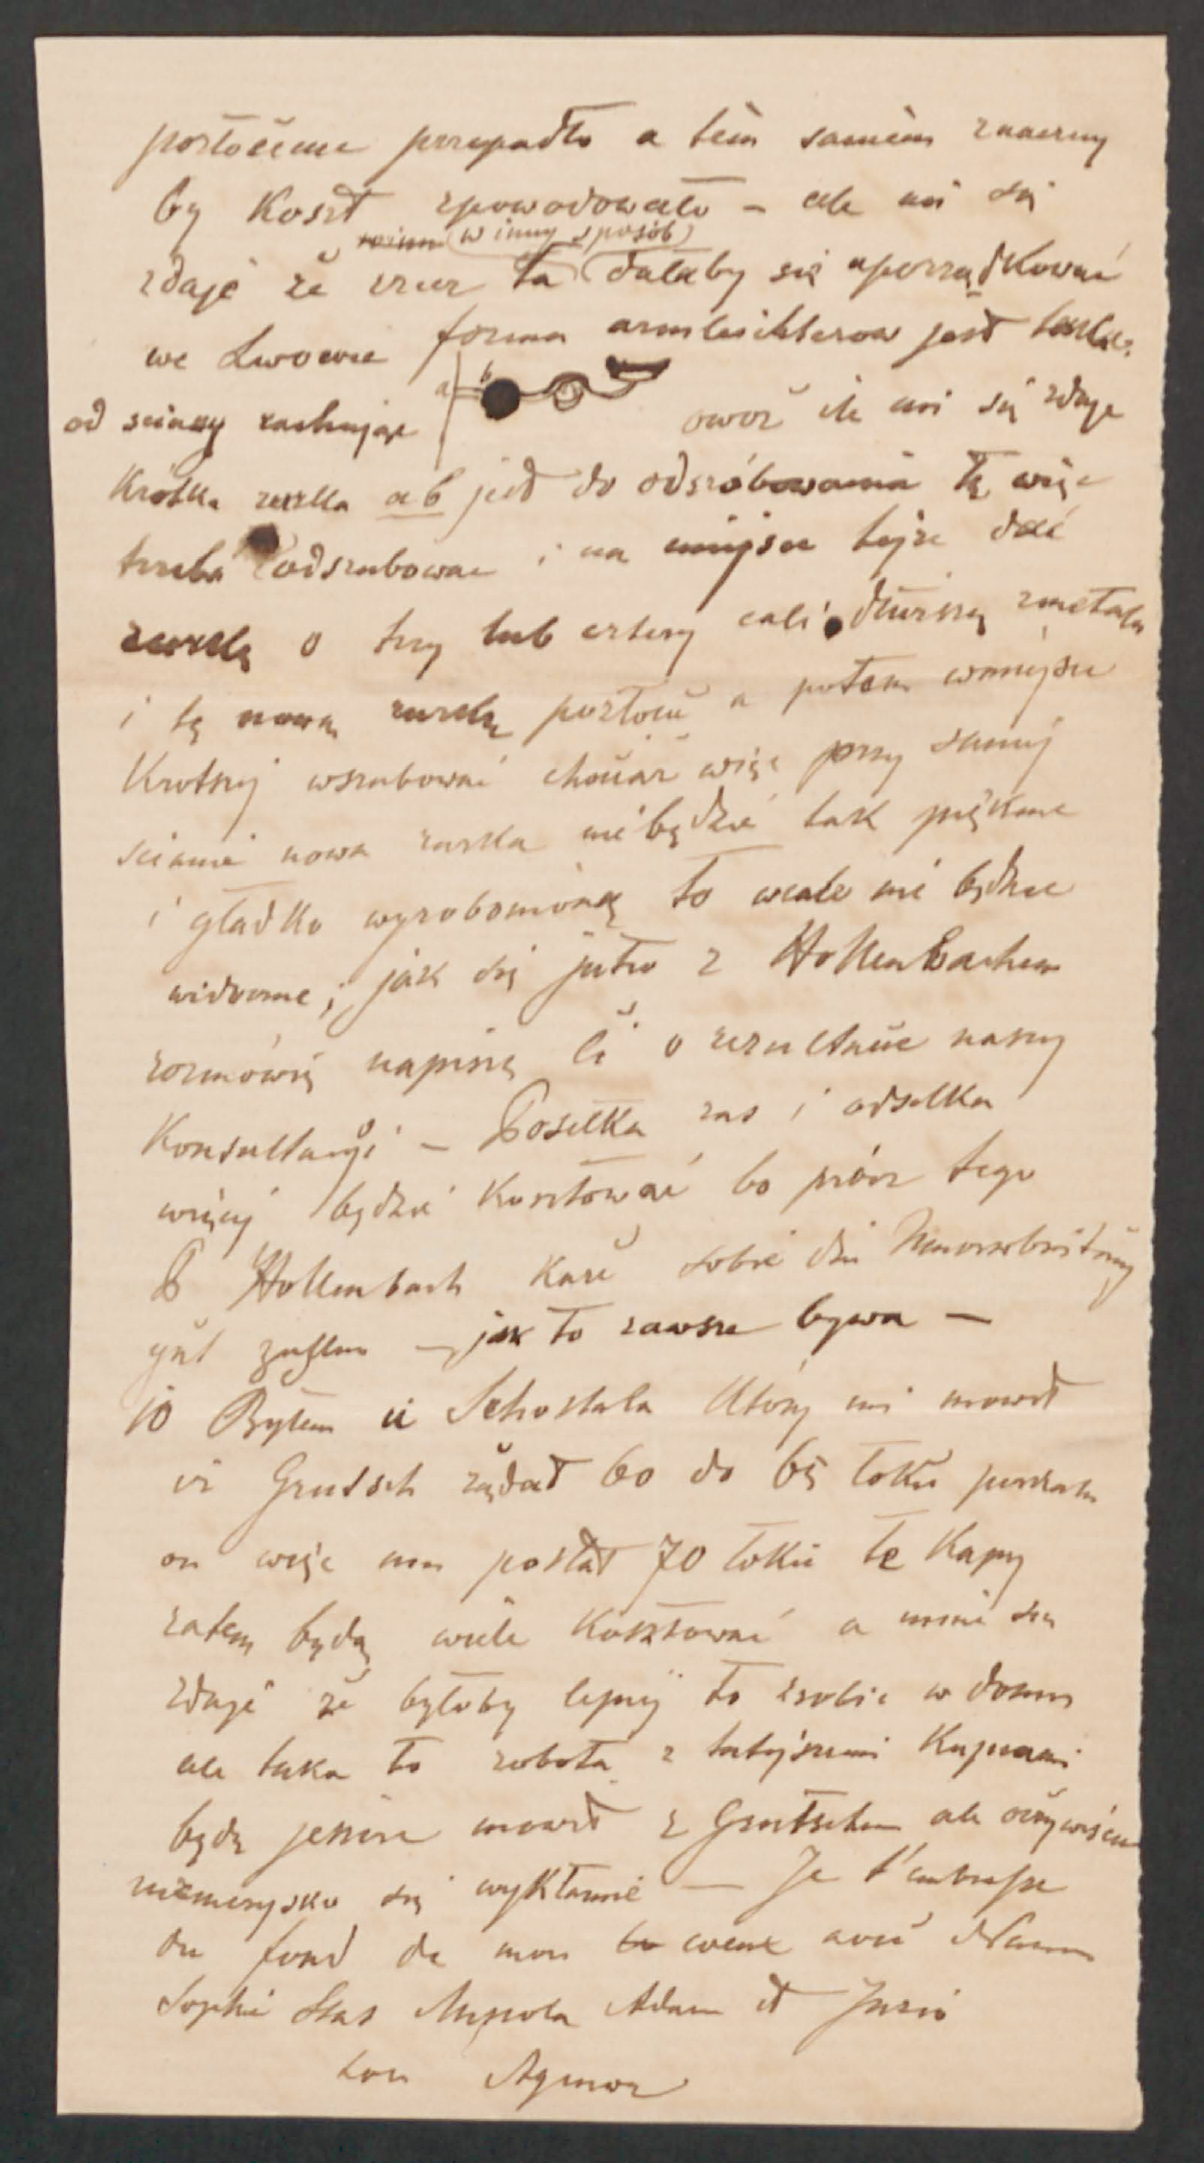 pozłocenie przepadło a tém samém znaczny
by koszt spowodowało – ale mi się
w inny sposób
zdaje że rzecz ta dałaby się uporządkować
we Lwowie forma armleichterow jest taka:
a b
od sciany rachując owoż ile mi się zdaje
krótka rurka ab jest do odśróbowania tę więc
trzeba odszrubowac i na miejsce tejze dać
rurkę o trzy lub cztery cali dłuższą z metalu
i tę nową rurkę pozłocić a potem w miejsce
krotszej wszrubować chociaż więc przy samej
scianie nowa rurka nie będzie tak pięknie
i gładko wyrobioną to wcale nie będzie
widoczne, jak się jutro z Hollenbachem
rozmówię napiszę Ci o rezultacie naszej
Konsultacyi – Posełka zas i odselka
więcej będzie kosztować bo prócz tego
P Hollenbach każe sobie die
gut zahlen – jak to zawsze bywa –
Byłem u Schostala który mi mowił
iż Grutsch żądał 60 do 65 łokci
on więc mu posłał 70 łokci te kapy
zatem będą wiele kosztować a mnie się
zdaje że byłoby lepiej to zrobic w domu
ale taka to robota z tutejszemi Kupcami
będę jeszcze mowił z Grutschem ale oczywiscie
się wykłamie — Je t'embrasse
du fond de mon coeur avec Maman
Sophie Stas Adam et Juzio
ton